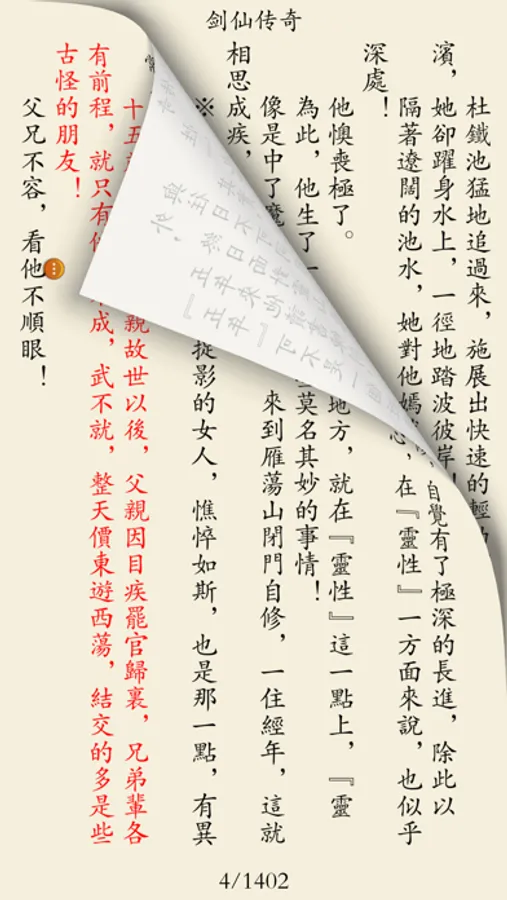 剑仙传奇
杜鐵池猛地追過來，施展出快速的輕
濱，她卻躍身水上，一徑地踏波彼岸！
自覺有了極深的長進，除此以
隔著遼闊的池水，她對他嫣
心，在『靈性』一方面來說，也似乎
深處！
他懊喪極了。
地方，就在『靈性』這一點上，『靈
為此，他生了一
莫名其妙的事情！
像是中了魔
來到雁蕩山閉門自修，一住經年，這就
相思成疾，
※
捉影的女人，憔悴如斯，也是那一點，有異
十五
親故世以後，父親因目疾罷官歸裏，兄弟輩各
有前程，就只有他
成，武不就，整天價東遊西蕩，結交的多是些
古怪的朋友！
父兄不容，看他不順眼！
4/1402